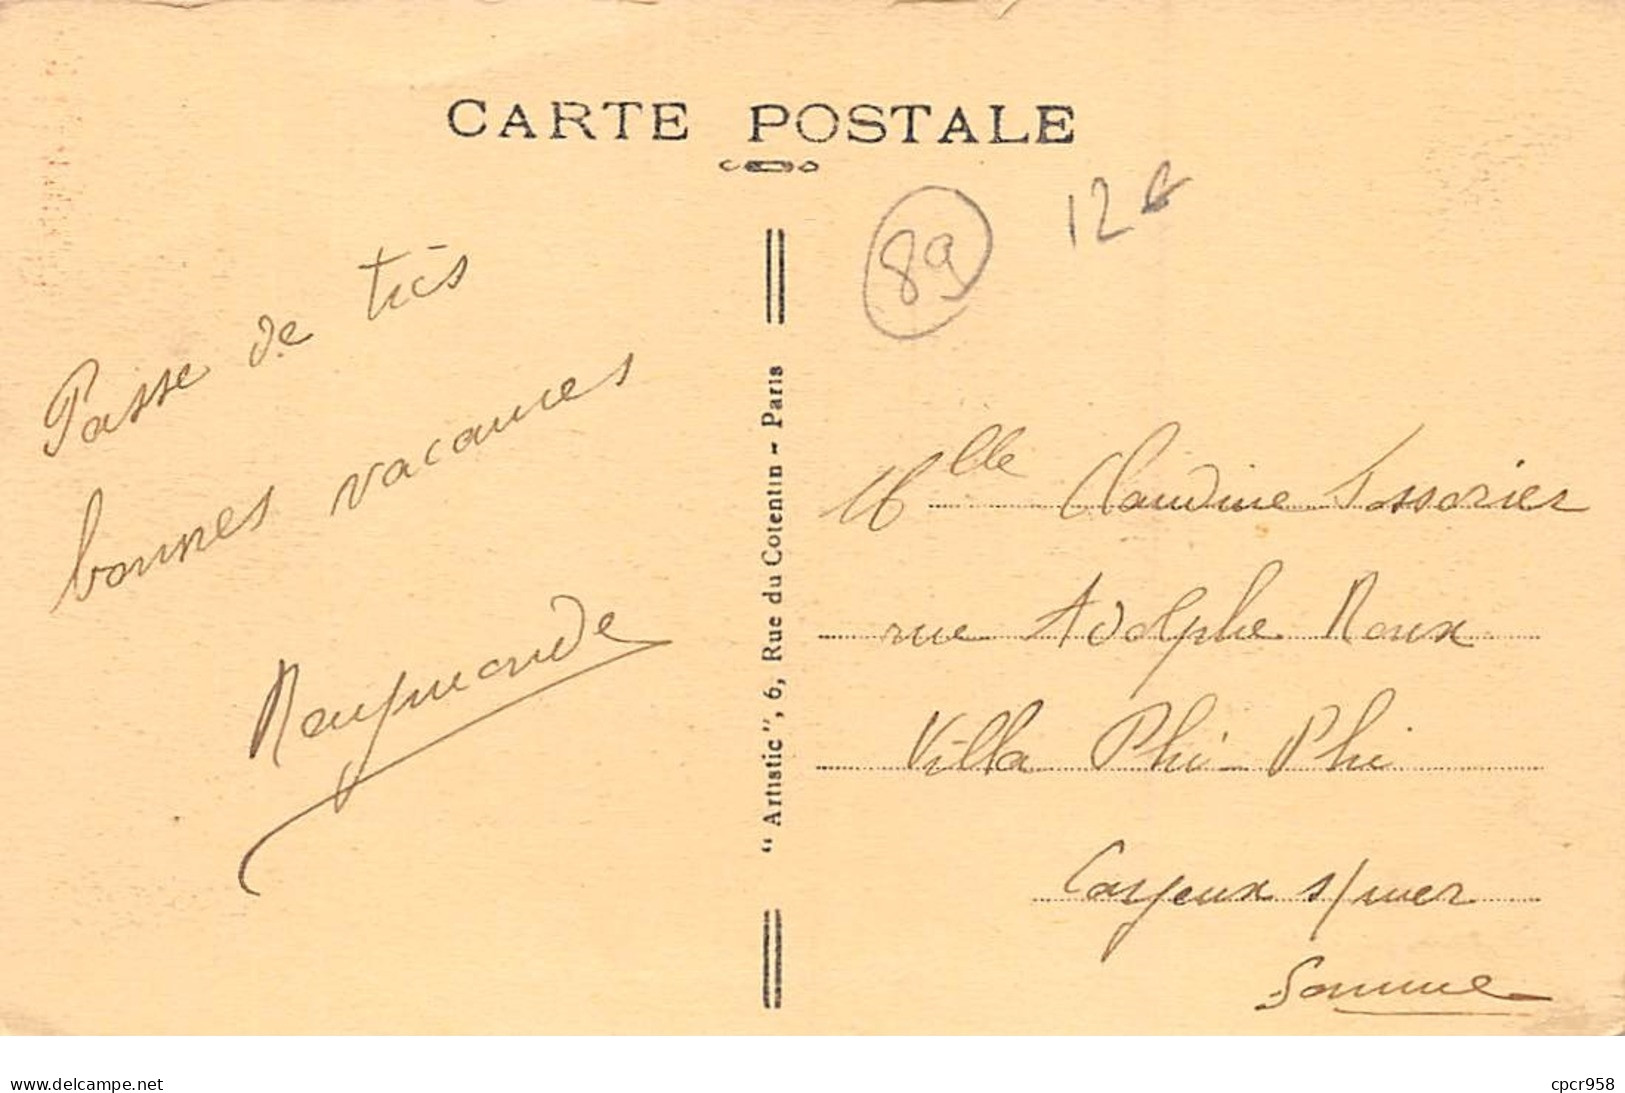 CARTE POSTALE
89
12€
Passe de très
bonnes vacances
Raymonde
"Artistic", 6, Rue du Cotentin - Paris
Mlle Claudine
rue Adolphe Roux
Villa Phi-Phi
Cayeux s/mer
Somme
delcampe.net
cpcr958